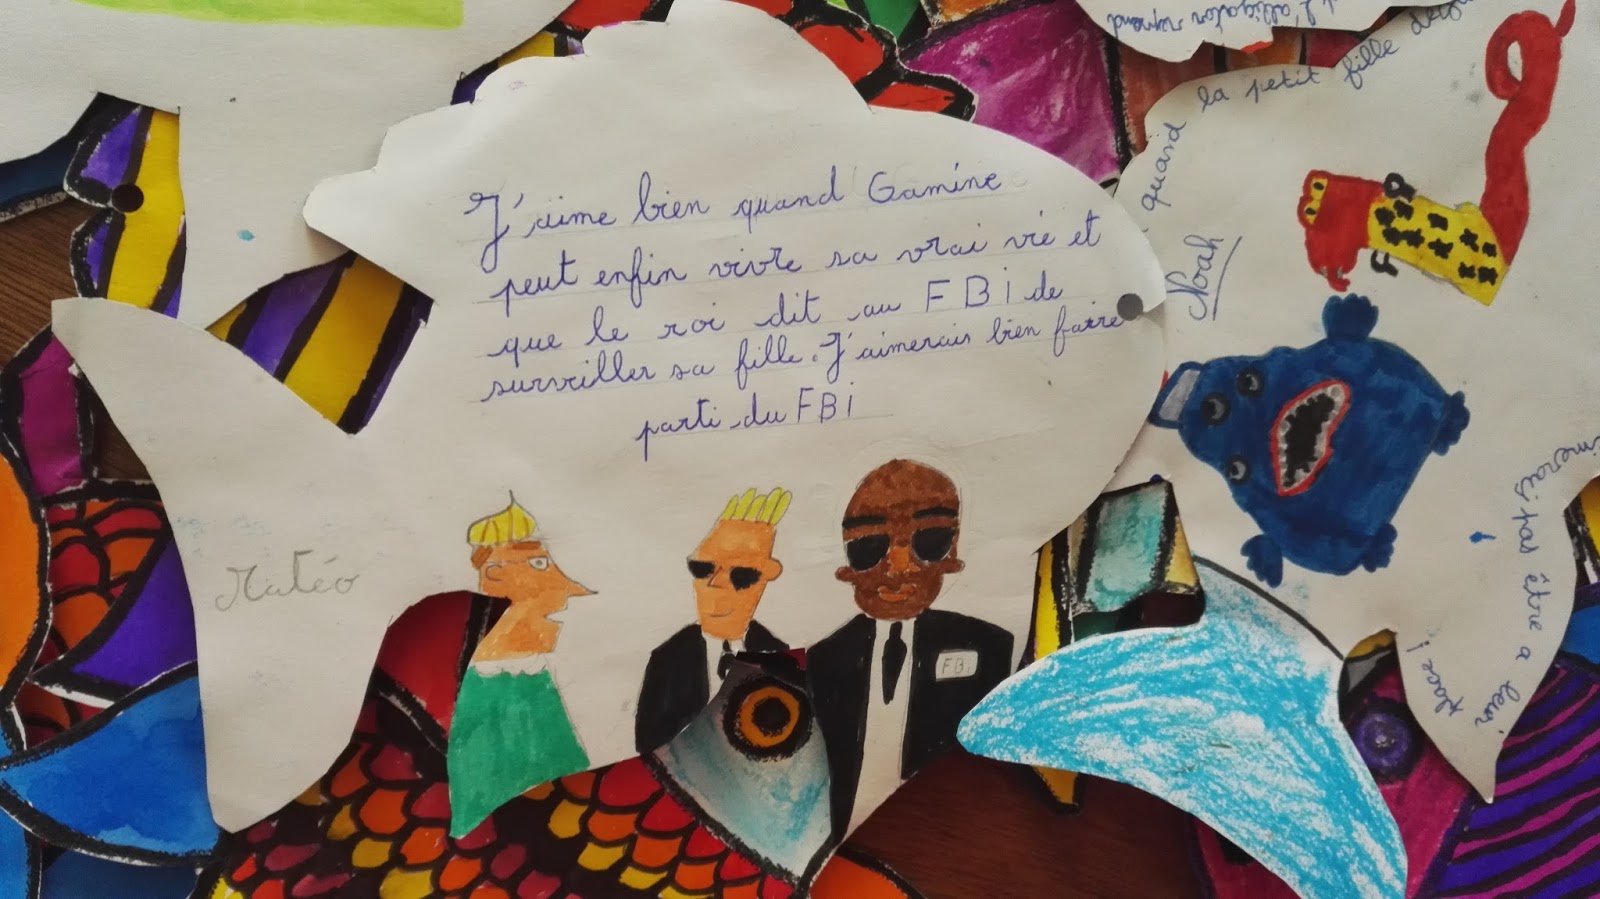 J'aime bien quand Gamine
peut enfin vivre sa vrai vie et
que le roi dit au FBi de
surveiller sa fille. J'aimerais bien faire
parti du FBi
Matéo
FBi
l'alligator reprend
quand la petit fille
Noah
pas être a leur
place!